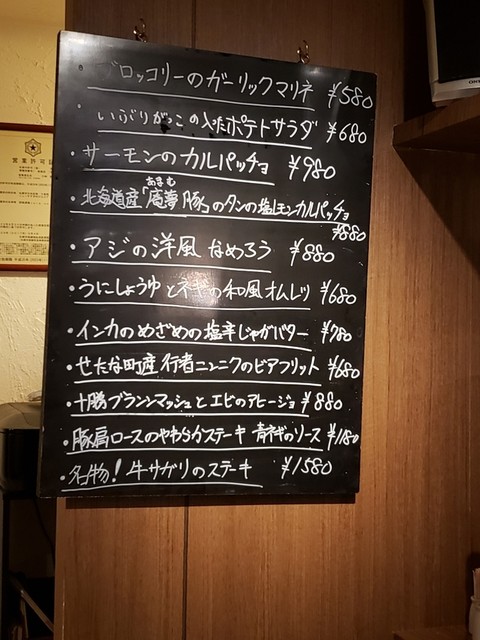 ・ブロッコリーのガーリックマリネ ¥580
・いぶりがっこの入ったポテトサラダ ¥680
・サーモンのカルパッチョ ¥980
あまむ
・北海道産「庵夢豚」のタンの塩レモンカルパッチョ
¥880
・アジの洋風なめろう ¥880
・うにしょうゆとネギの和風オムレツ ¥680
・インカのめざめの塩辛じゃがバター ¥780
・せたな町産 行者ニンニクのビアフリット ¥680
・十勝ブラウンマッシュとエビのアヒージョ ¥880
・豚肩ロースのやわらかステーキ 青ネギのソース ¥1180
・名物！牛サガリのステーキ ¥1580
営業許可証